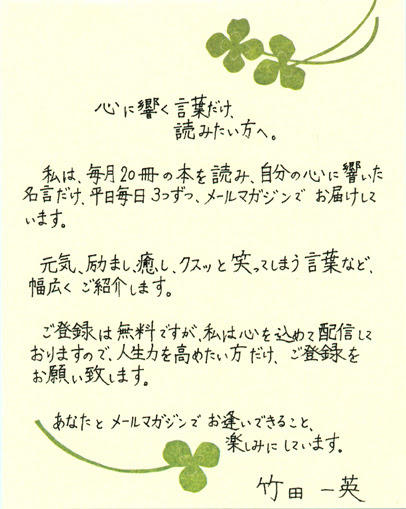 心に響く言葉だけ、
読みたい方へ。
私は、毎月20冊の本を読み、自分の心に響いた
名言だけ、平日毎日3つずつ、メールマガジンでお届けして
います。
元気、励まし、癒し、クスッと笑ってしまう言葉など、
幅広くご紹介します。
ご登録は無料ですが、私は心を込めて配信して
おりますので、人生力を高めたい方だけ、ご登録を
お願い致します。
あなたとメールマガジンでお逢いできること、
楽しみにしています。
竹田 一英